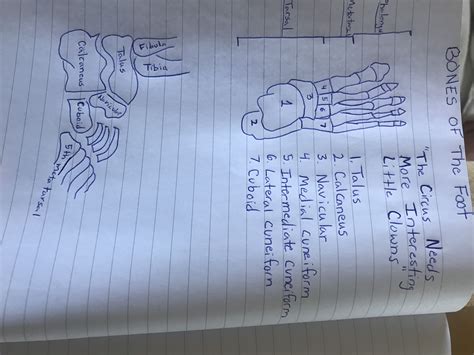 BONES OF THE FOOT
"The Circus Needs
More Interesting
Little Clowns"
Phalanges
Metatarsal
Tarsal
4 5 6 7
3
1
2
1. Talus
2 Calcaneus
3. Navicular
4. Medial Cuneiform
5. Intermediate Cuneiform
6. Lateral Cuneiform
7. Cuboid
Fibula
Tibia
Talus
Navicular
Calcaneus
Cuboid
5th metatarsal